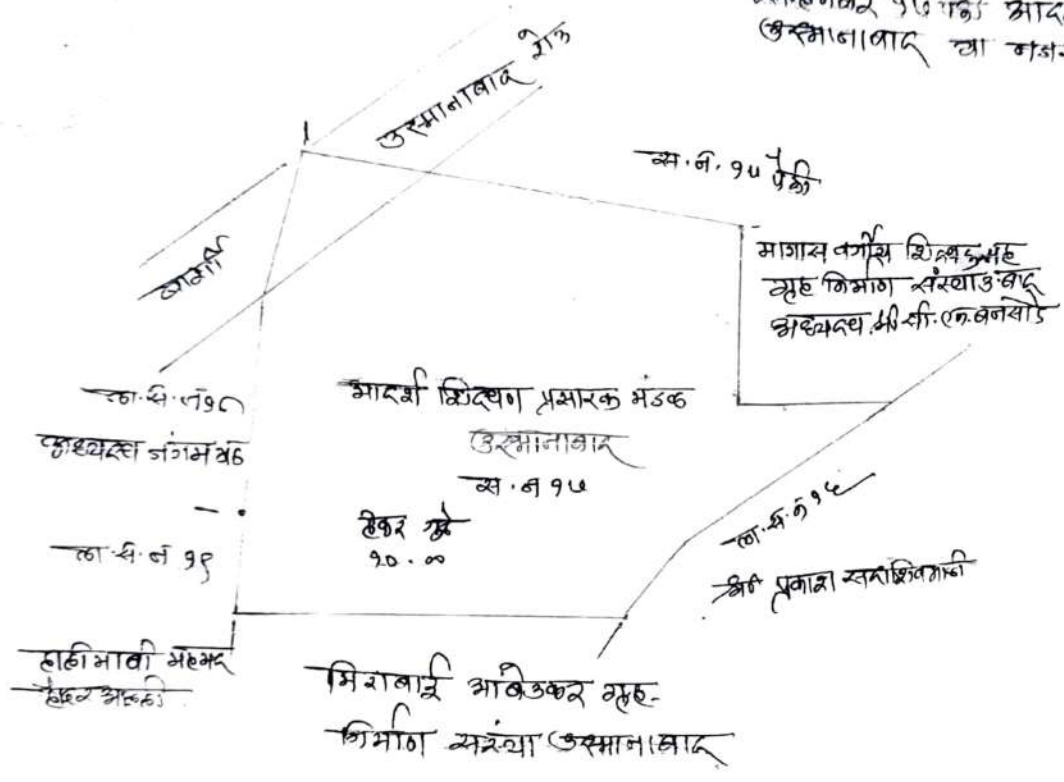 १७ पैकी आद
उस्मानाबाद चा नका
उस्मानाबाद रोड
बार्शी
स.नं. १७ पैकी
मागास वर्गीय शिक्षक गृह
गृह निर्माण संस्था उ.बाद
अध्यक्ष श्री सी. एन. बनसोडे
ला.स.नं १८
अध्यक्ष जंगम मठ
आदर्श शिक्षण प्रसारक मंडळ
उस्मानाबाद
स.नं १७
हेक्टर गुंठे
ला.स.नं १९
ला.स.नं १६
श्री प्रकाश सदाशिव माळी
हालीमाबी महमद
हैदर अल्ली
मिराबाई आंबेडकर गृह-
निर्माण संस्था उस्मानाबाद